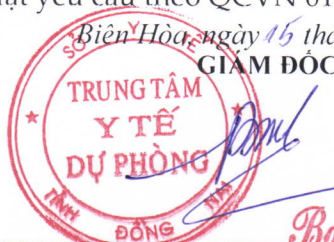 yêu cầu theo QCVN 01
Biên Hòa, ngày 15
GIÁM ĐỐC
SỞ Y TẾ
TRUNG TÂM
Y TẾ
DỰ PHÒNG
TỈNH
ĐỒNG NAI